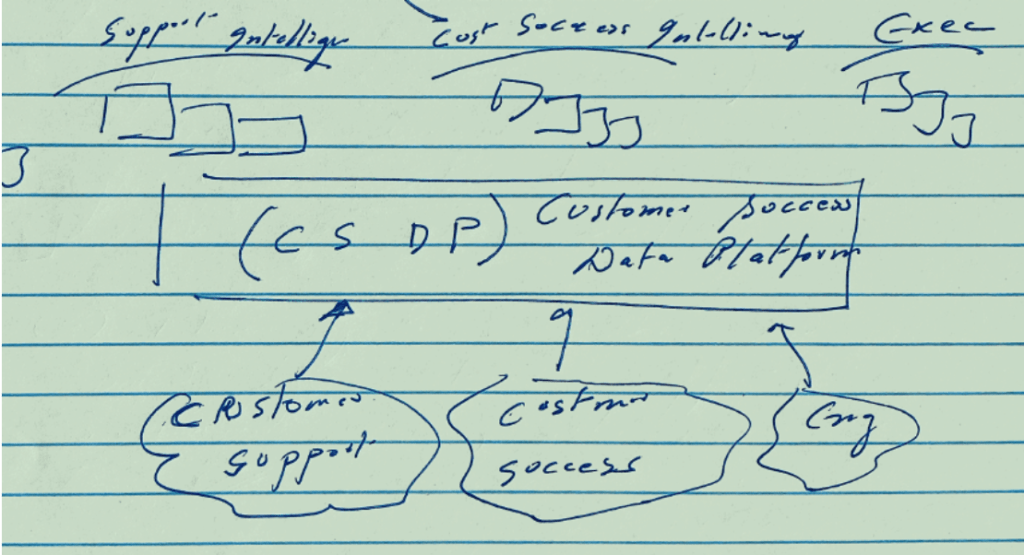 Support Intellige
Cost Success Intelligence
Exec
(CSDP) Customer Success
Data Platform
Customer
Support
Customer
Success
Eng